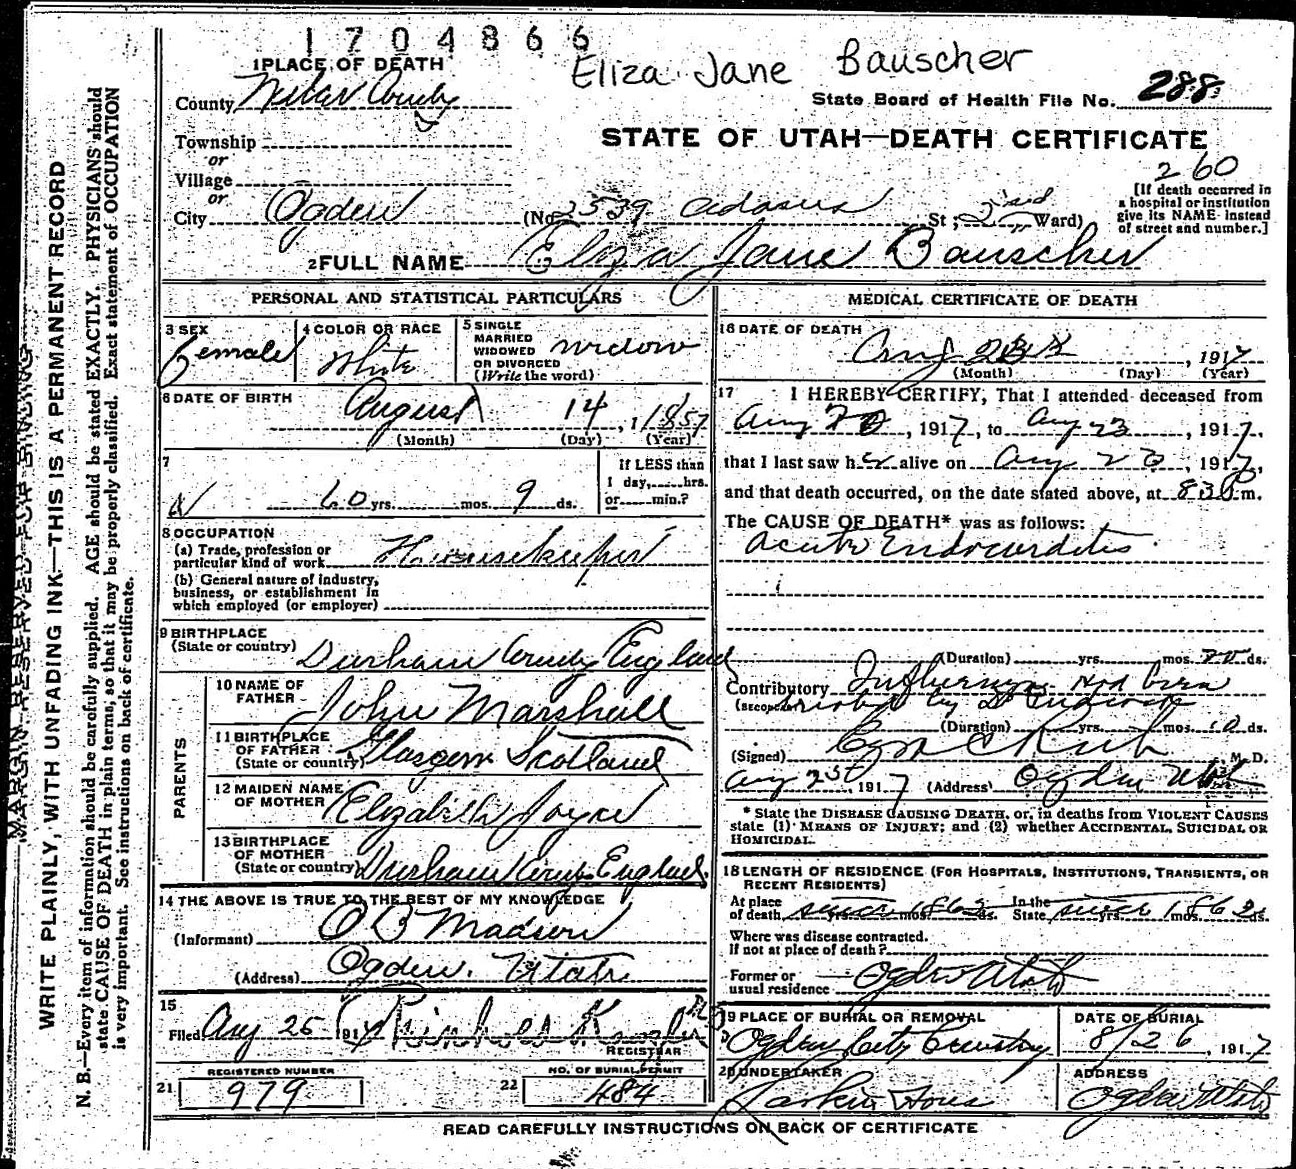 1704866
Eliza Jane Bauscher
1 PLACE OF DEATH
County Weber County
State Board of Health File No. 288
Township
or
Village
or
STATE OF UTAH—DEATH CERTIFICATE
260
[If death occurred in
a hospital or institution
give its NAME instead
of street and number.]
City Ogden (No. 2539 Adams St; 2nd Ward)
2 FULL NAME Eliza Jane Bauscher
PERSONAL AND STATISTICAL PARTICULARS
3 SEX
Female
4 COLOR OR RACE
White
5 SINGLE
MARRIED
WIDOWED
OR DIVORCED
(Write the word)
widow
6 DATE OF BIRTH
August 14, 1857
(Month) (Day) (Year)
7
60 yrs. mos. 9 ds.
If LESS than
1 day, hrs.
or min.?
8 OCCUPATION
(a) Trade, profession or
particular kind of work Housekeeper
(b) General nature of industry,
business, or establishment in
which employed (or employer)
9 BIRTHPLACE
(State or country) Durham County England
PARENTS
10 NAME OF
FATHER John Marshall
11 BIRTHPLACE
OF FATHER
(State or country) Glasgow Scotland
12 MAIDEN NAME
OF MOTHER Elizabeth Joyce
13 BIRTHPLACE
OF MOTHER
(State or country) Durham County England.
14 THE ABOVE IS TRUE TO THE BEST OF MY KNOWLEDGE
(Informant) O B Madson
(Address) Ogden. Utah.
15
Filed Aug 25 1917
REGISTRAR
REGISTERED NUMBER
21 979
NO. OF BURIAL PERMIT
22 484
MEDICAL CERTIFICATE OF DEATH
16 DATE OF DEATH
Aug 23, 1917
(Month) (Day) (Year)
17 I HEREBY CERTIFY, That I attended deceased from
Aug 20, 1917, to Aug 23, 1917,
that I last saw her alive on Aug 23, 1917,
and that death occurred, on the date stated above, at 830 m.
The CAUSE OF DEATH* was as follows:
Acute Endocarditis.
(Duration) yrs. mos. ds.
Contributory
(SECONDARY)
(Duration) yrs. mos. 10 ds.
(Signed) M. D.
Aug 25, 1917 (Address) Ogden Utah
* State the DISEASE CAUSING DEATH, or, in deaths from VIOLENT CAUSES
state (1) MEANS OF INJURY; and (2) whether ACCIDENTAL, SUICIDAL OR
HOMICIDAL.
18 LENGTH OF RESIDENCE (FOR HOSPITALS, INSTITUTIONS, TRANSIENTS, OR
RECENT RESIDENTS)
At place
of death since yrs. 1863 mos. ds. In the
State since yrs. 1863 mos. ds.
Where was disease contracted.
If not at place of death?
Former or
usual residence Ogden Utah
19 PLACE OF BURIAL OR REMOVAL
Ogden City Cemetery
DATE OF BURIAL
8/26, 1917
20 UNDERTAKER
Larkin Sons
ADDRESS
Ogden Utah
READ CAREFULLY INSTRUCTIONS ON BACK OF CERTIFICATE
MARGIN RESERVED FOR BINDING
WRITE PLAINLY, WITH UNFADING INK—THIS IS A PERMANENT RECORD
N. B.—Every item of information should be carefully supplied. AGE should be stated EXACTLY. PHYSICIANS should
state CAUSE OF DEATH in plain terms, so that it may be properly classified. Exact statement of OCCUPATION
is very important. See instructions on back of certificate.